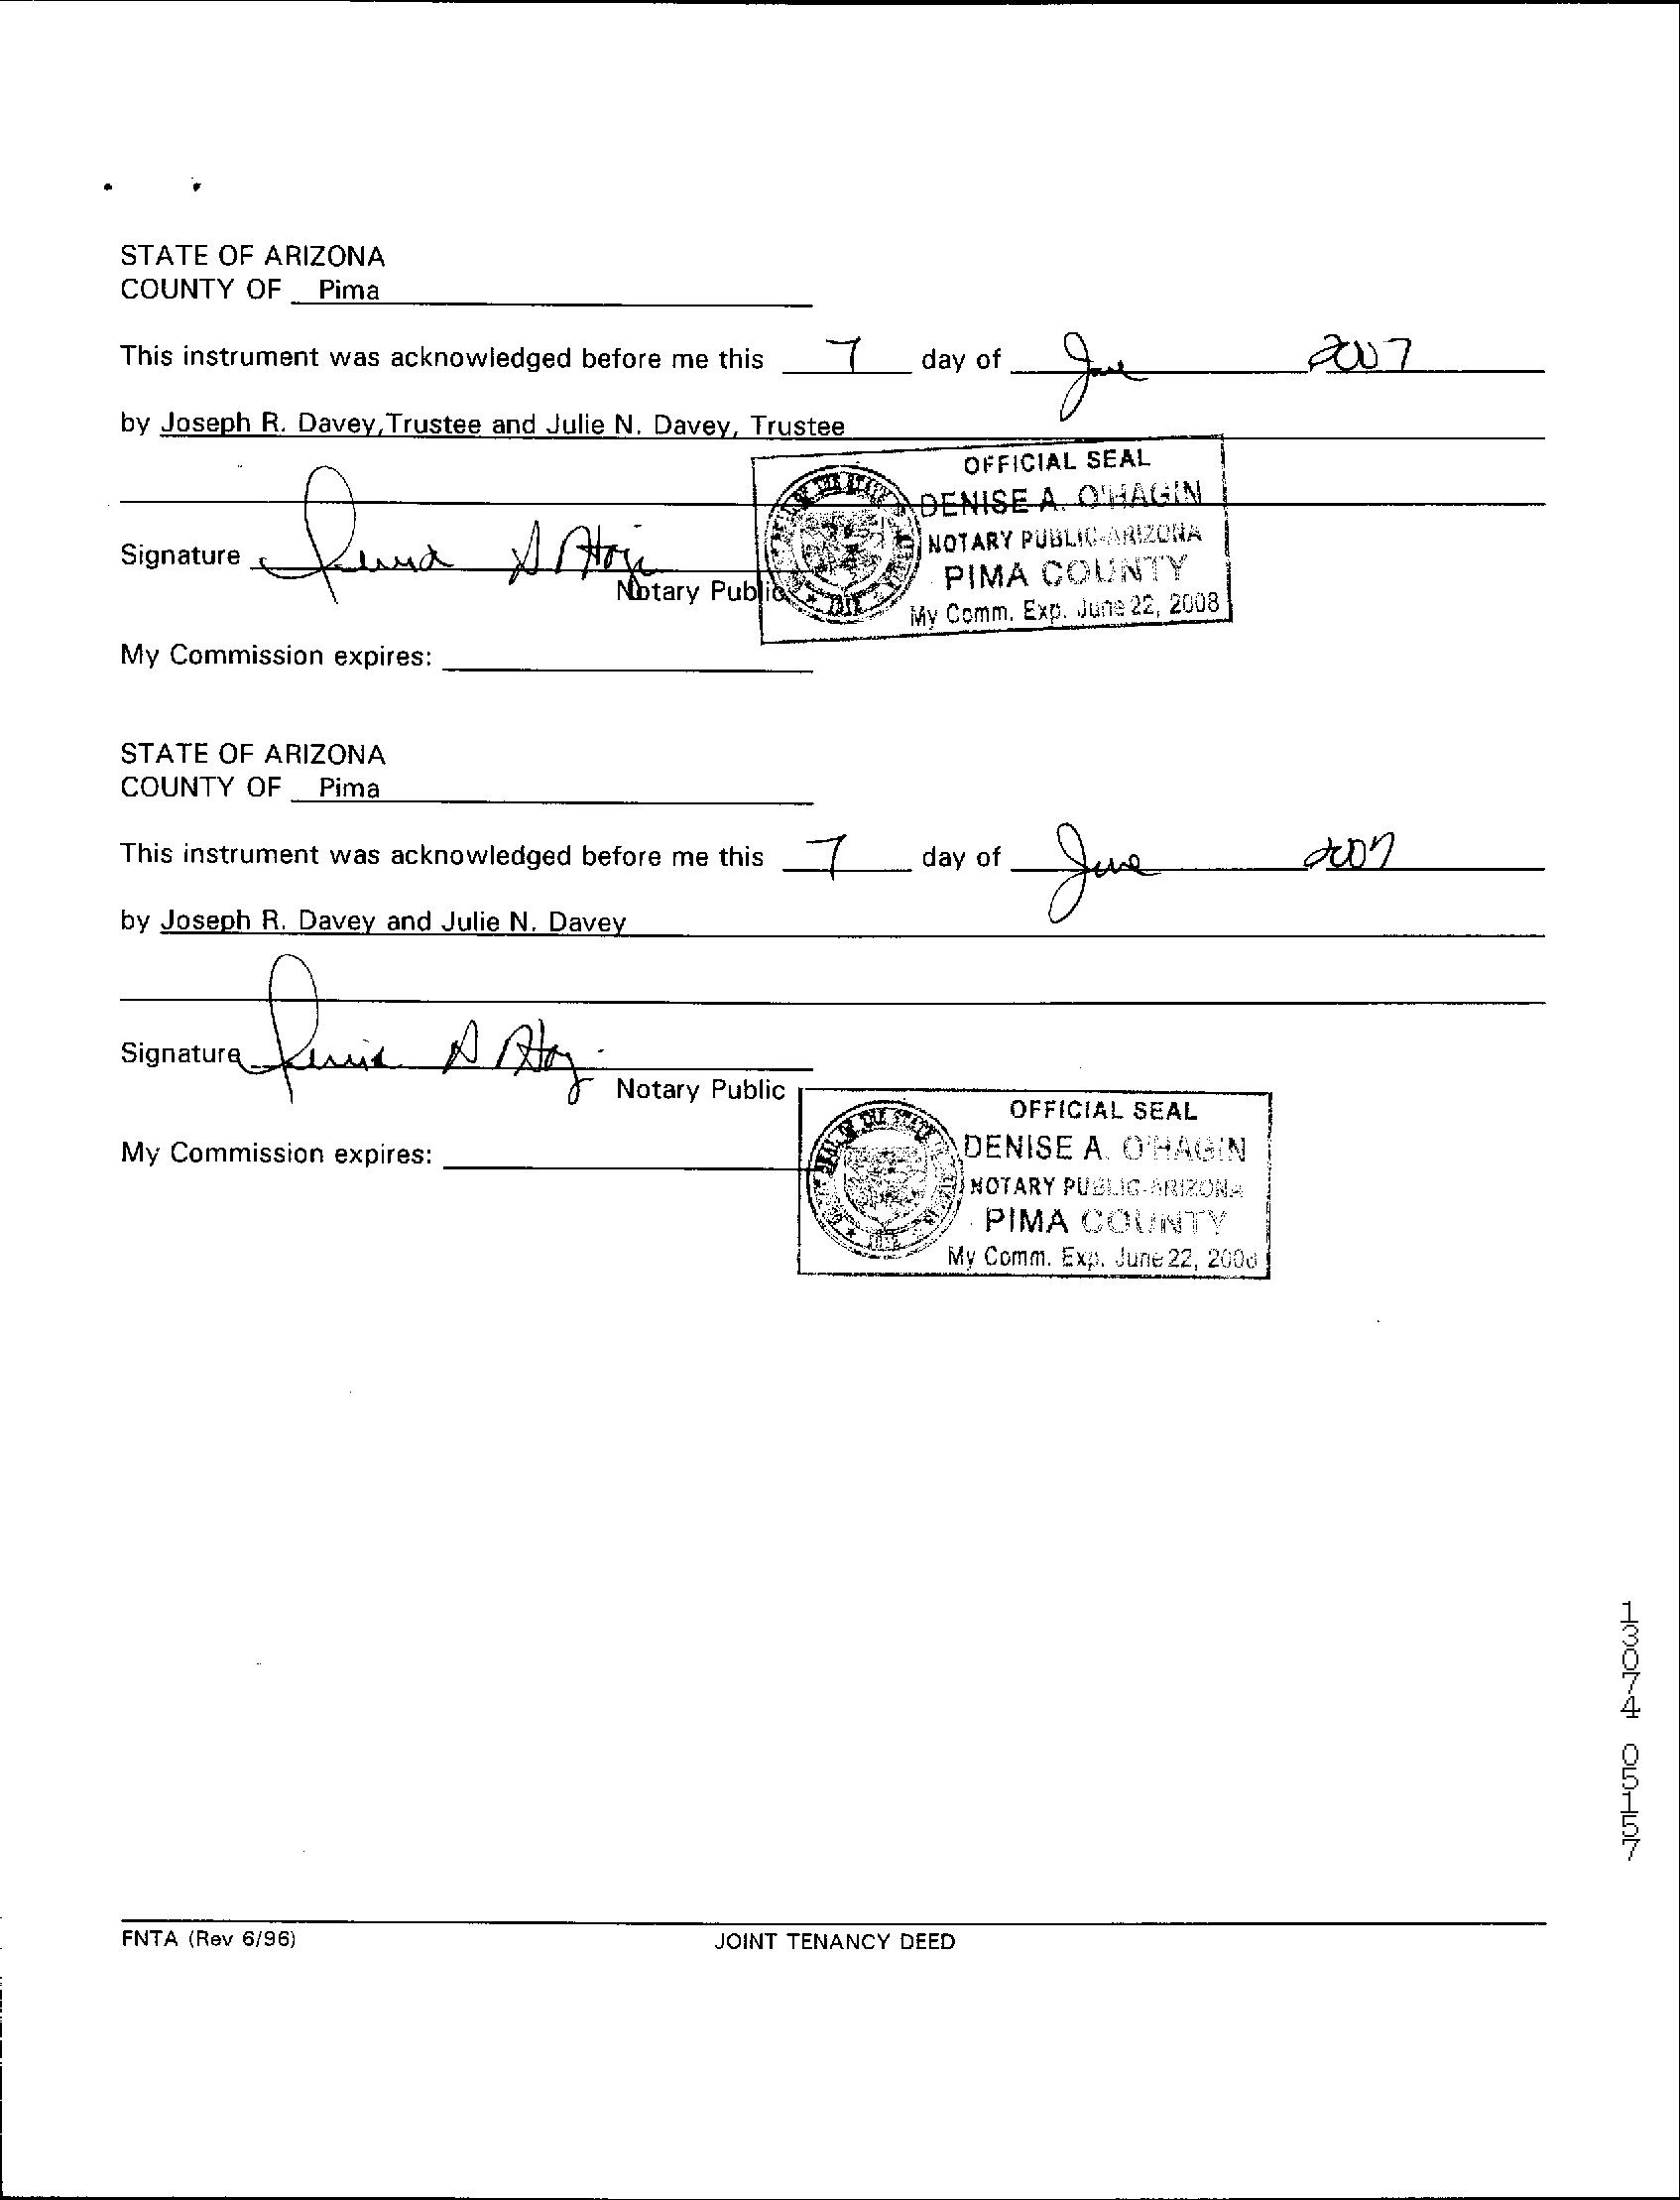 STATE OF ARIZONA
COUNTY OF Pima
This instrument was acknowledged before me this 7 day of June 2007
by Joseph R. Davey, Trustee and Julie N. Davey, Trustee
OFFICIAL SEAL
DENISE A. O'HAGIN
NOTARY PUBLIC-ARIZONA
PIMA COUNTY
My Comm. Exp. June 22, 2008
Signature
Notary Public
My Commission expires:
STATE OF ARIZONA
COUNTY OF Pima
This instrument was acknowledged before me this 7 day of June 2007
by Joseph R. Davey and Julie N. Davey
Signature
Notary Public
OFFICIAL SEAL
DENISE A. O'HAGIN
NOTARY PUBLIC-ARIZONA
PIMA COUNTY
My Comm. Exp. June 22, 2008
My Commission expires:
13074 05157
FNTA (Rev 6/96)
JOINT TENANCY DEED